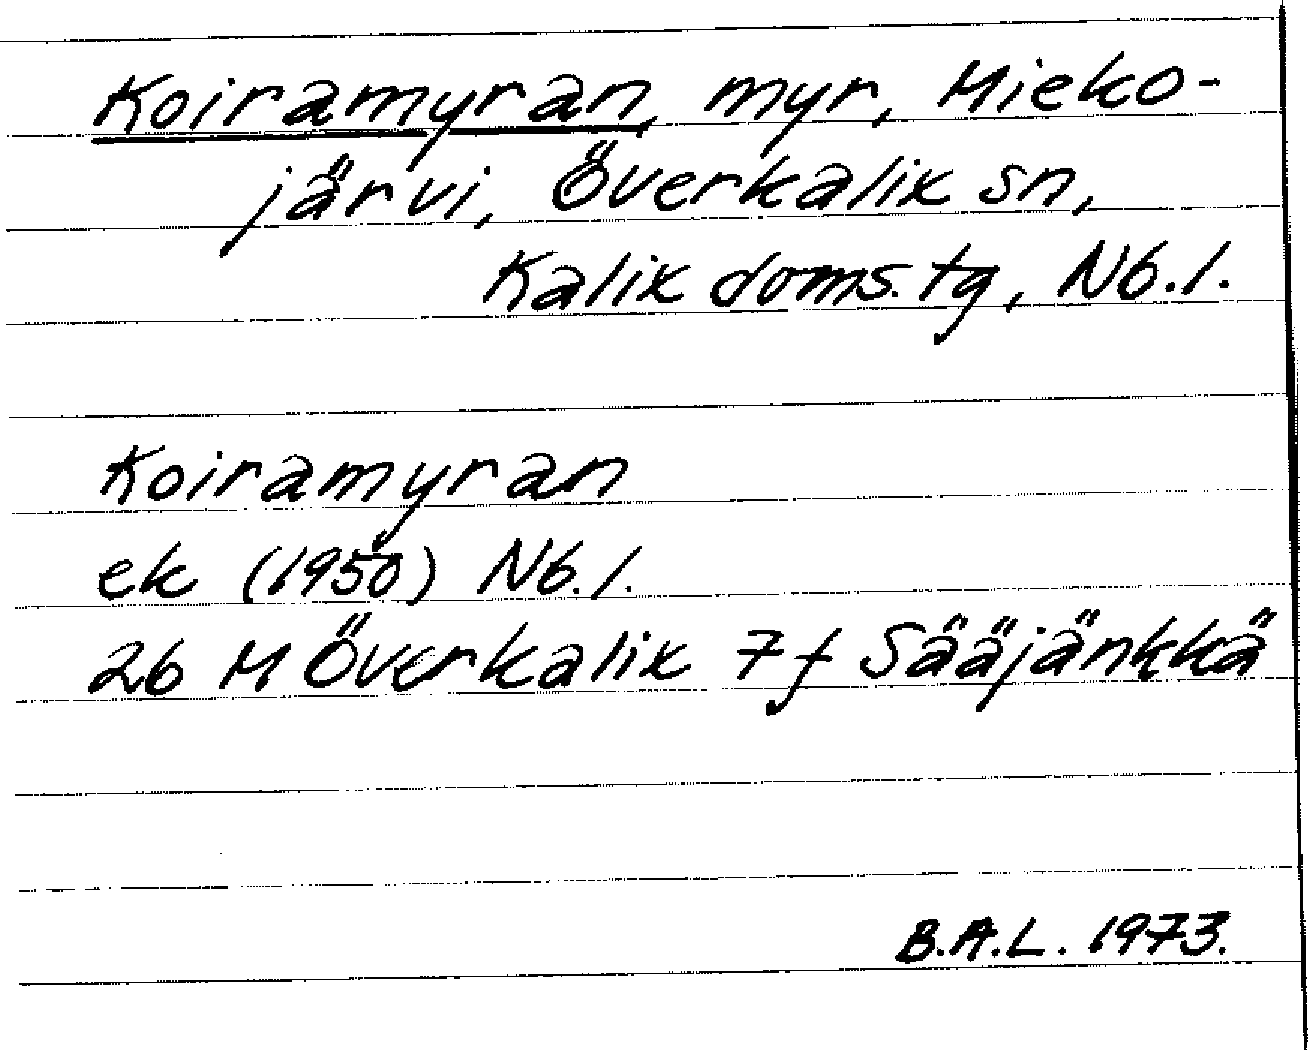 Koiramyran, myr, Mieko-
järvi, Överkalix sn,
Kalix doms. tg, Nb. l.
Koiramyran
ek (1950) Nb. l.
26 M Överkalix 7 f Sääjänkkä
B.A.L. 1973.